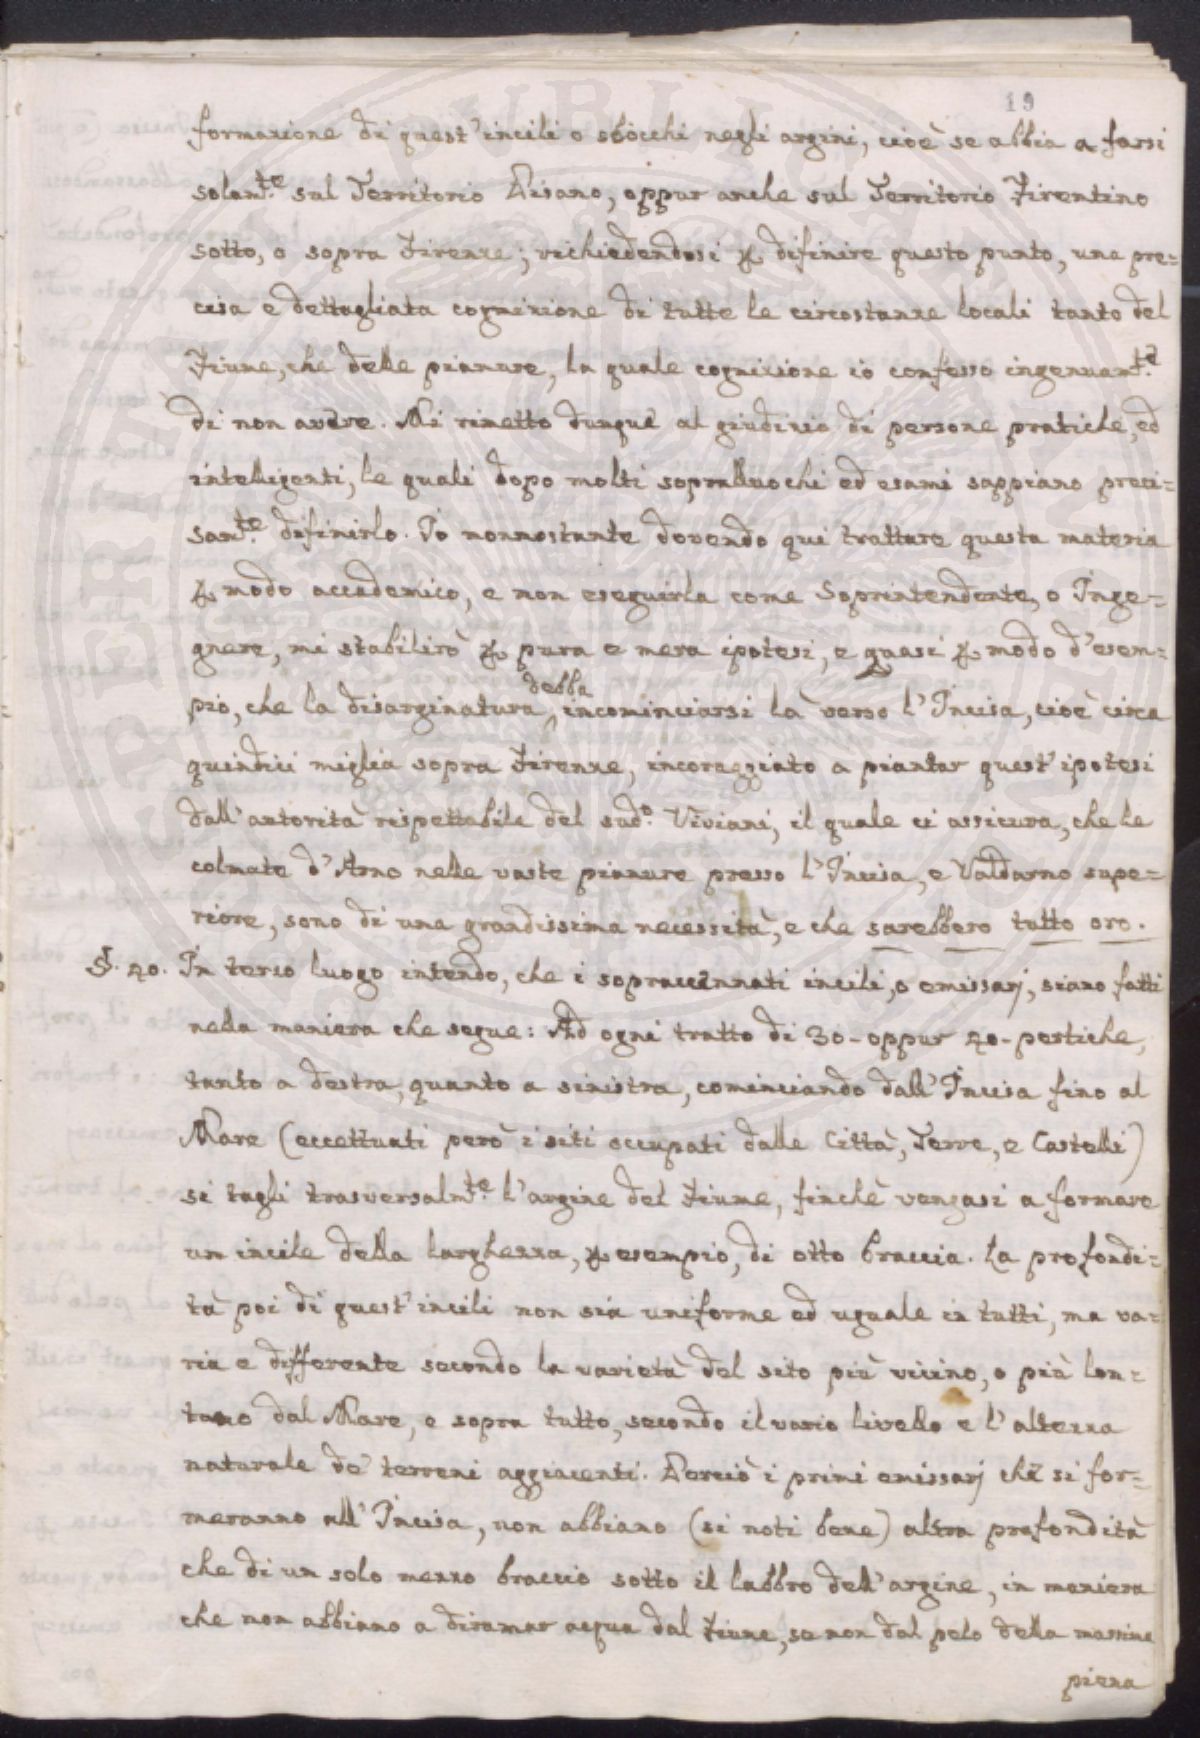 19
formazione di quest'incili o sbocchi negli argini, cioè se abbia a farsi
solam.te sul Territorio Pisano, oppur anche sul Territorio Fiorentino
sotto, o sopra Firenze; richiedendosi p. difinire questo punto, una pre=
cisa e dettagliata cognizione di tutte le circostanze locali tanto del
Fiume, che delle pianure, la quale cognizione io confesso ingenuam.te
di non avere. Mi rimetto dunque al giudizio di persone pratiche, ed
intelligenti, le quali dopo molti sopralluochi ed esami sappiano preci=
sam.te difinirlo. Io nonnostante dovendo qui trattare questa materia
p. modo accademico, e non eseguirla come Soprintendente, o Inge=
gnere, mi stabilirò p. pura e mera ipotesi, e quasi p. modo d'esem=
pio, che la disarginatura debba incominciarsi là verso l'Incisa, cioè circa
quindici miglia sopra Firenze, incoraggiato a piantar quest'ipotesi
dall'autorità rispettabile del sud.o Viviani, il quale ci assicura, che le
colmate d'Arno nelle vaste pianure presso l'Incisa, e Valdarno supe=
riore, sono di una grandissima necessità, e che sarebbero tutto oro.
§. 40. In terzo luogo intendo, che i sopraccennati incili, o emissarj, siano fatti
nella maniera che segue: Ad ogni tratto di 30 - oppur 40 - pertiche,
tanto a destra, quanto a sinistra, cominciando dall'Incisa fino al
Mare (eccettuati però i siti occupati dalle Città, Terre, e Castelli)
si tagli trasversalm.te l'argine del Fiume, finchè vengasi a formare
un incile della larghezza, p. esempio, di otto braccia. La profondi=
tà poi di quest'incili non sia uniforme ed uguale in tutti, ma va=
ria e differente secondo la varietà del sito più vicino, o più lon=
tano dal Mare, e sopra tutto, secondo il vario livello e l'altezza
naturale de' terreni aggiacenti. Perciò i primi emissarj che si for=
meranno all'Incisa, non abbiano (si noti bene) altra profondità
che di un solo mezzo braccio sotto il labbro dell'argine, in maniera
che non abbiano a diramar acqua dal Fiume, se non dal pelo della massima
piena